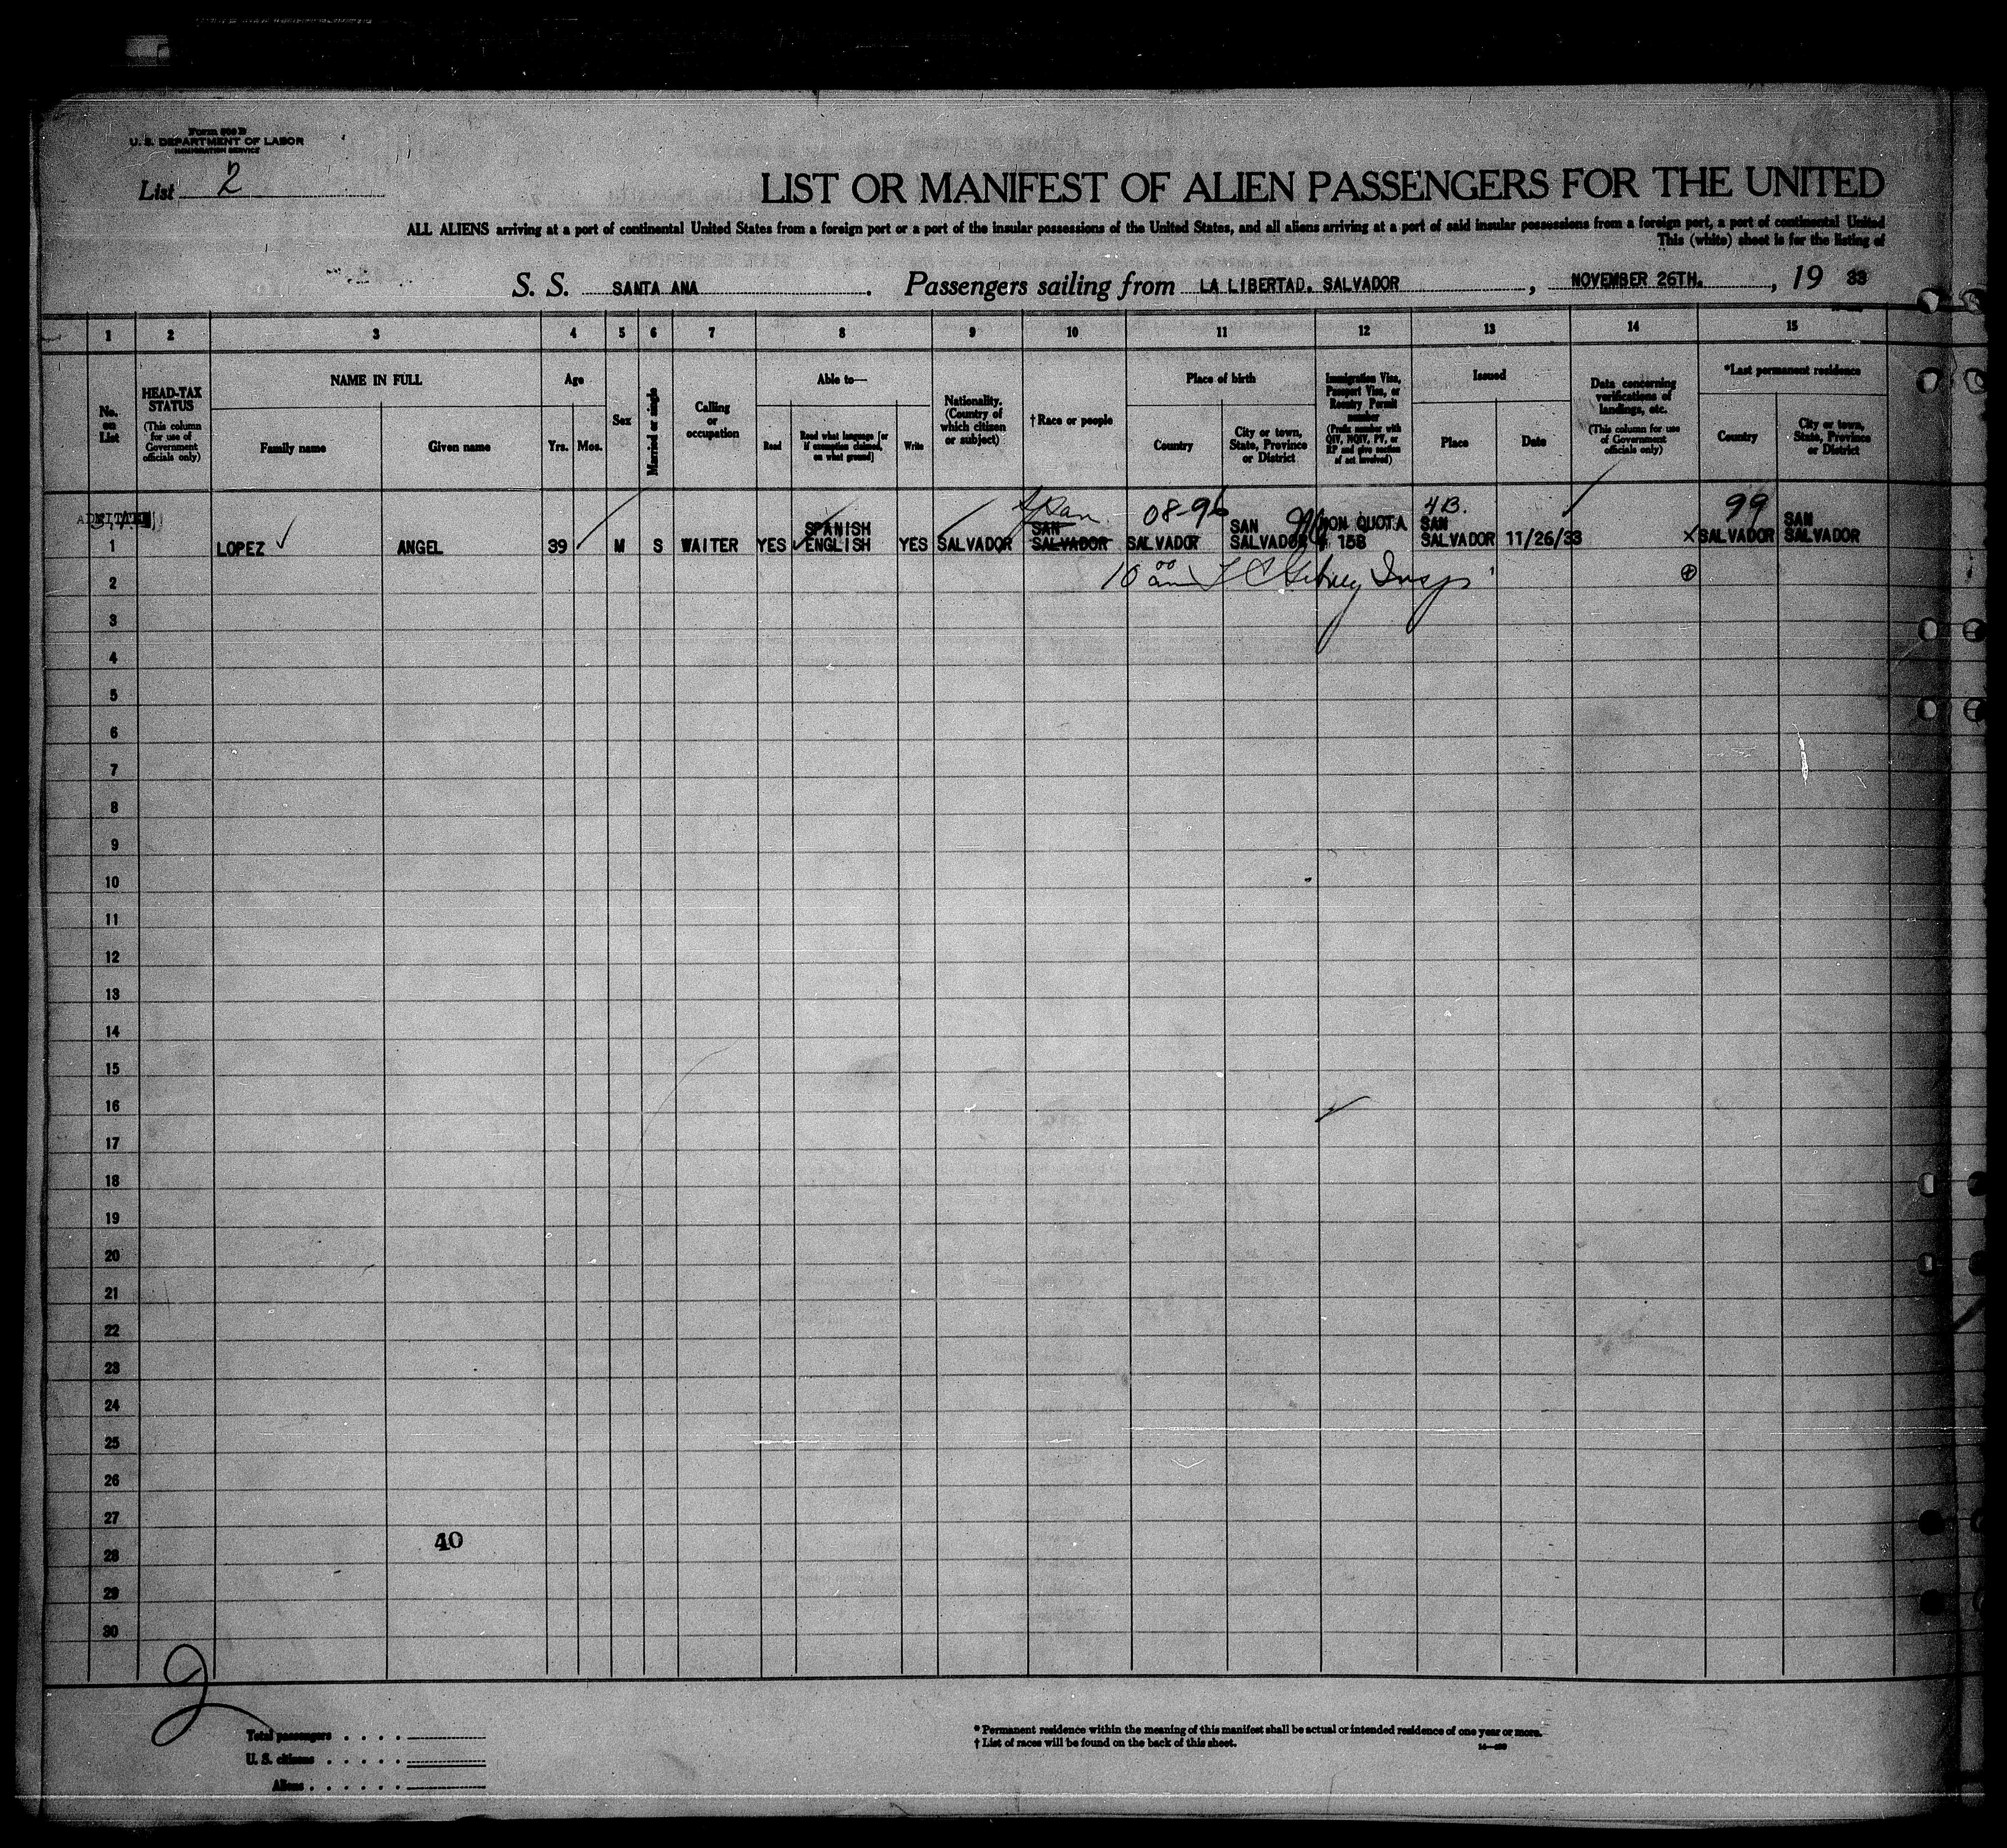 Form 500 B
U. S. DEPARTMENT OF LABOR
IMMIGRATION SERVICE
List 2
LIST OR MANIFEST OF ALIEN PASSENGERS FOR THE UNITED
ALL ALIENS arriving at a port of continental United States from a foreign port or a port of the insular possessions of the United States, and all aliens arriving at a port of said insular possessions from a foreign port, a port of continental United
This (white) sheet is for the listing of
S. S. SANTA ANA. Passengers sailing from LA LIBERTAD, SALVADOR, NOVEMBER 26TH., 19 33
1 2 3 4 5 6 7 8 9 10 11 12 13 14 15
No. on List
HEAD-TAX STATUS (This column for use of Government officials only)
NAME IN FULL
Family name
Given name
Age
Yrs. Mos.
Sex
Married or single
Calling or occupation
Able to—
Read
Read what language [or if exemption claimed, on what ground]
Write
Nationality. (Country of which citizen or subject)
†Race or people
Place of birth
Country
City or town, State, Province or District
Immigration Visa, Passport Visa, or Reentry Permit number (Prefix number with QIV, NQIV, PV, or RP and give section of act involved)
Issued
Place
Date
Data concerning verifications of landings, etc. (This column for use of Government officials only)
*Last permanent residence
Country
City or town, State, Province or District
ADMITTED
Span 08-96 4B. 99
1 LOPEZ ANGEL 39 M S WAITER YES SPANISH ENGLISH YES SALVADOR SAN SALVADOR SALVADOR SAN SALVADOR NON QUOTA # 158 SAN SALVADOR 11/26/33 X SALVADOR SAN SALVADOR
10 00 am Insp
2
3
4
5
6
7
8
9
10
11
12
13
14
15
16
17
18
19
20
21
22
23
24
25
26
27
40
28
29
30
2
Total passengers
U. S. citizens
Aliens
* Permanent residence within the meaning of this manifest shall be actual or intended residence of one year or more.
† List of races will be found on the back of this sheet.